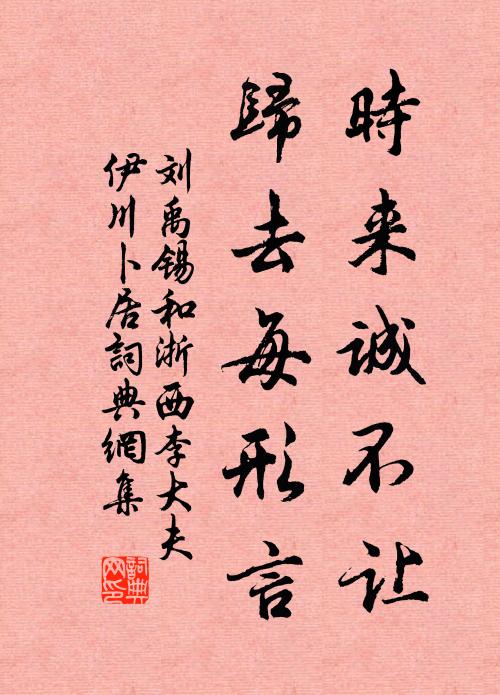 時来誠不让
歸去每形言
刘禹锡和浙西李大夫
伊川卜居詞典網集
詞典
网印